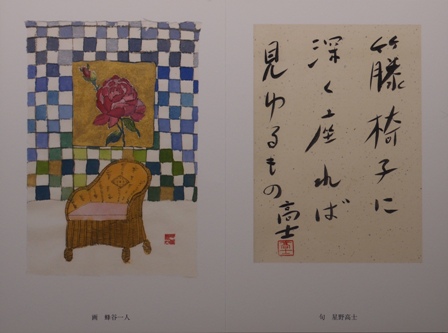 籐椅子に
深く座れば
見ゆるもの
高士
高士
画　蜂谷一人
句　星野高士